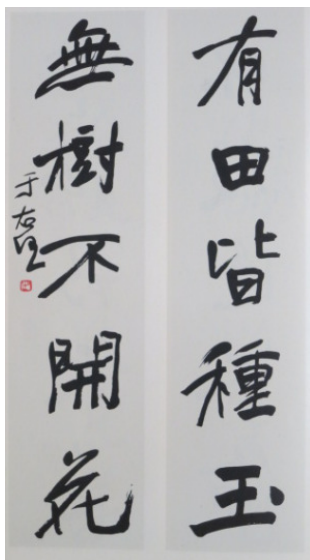 有田皆種玉
無樹不開花
于右任